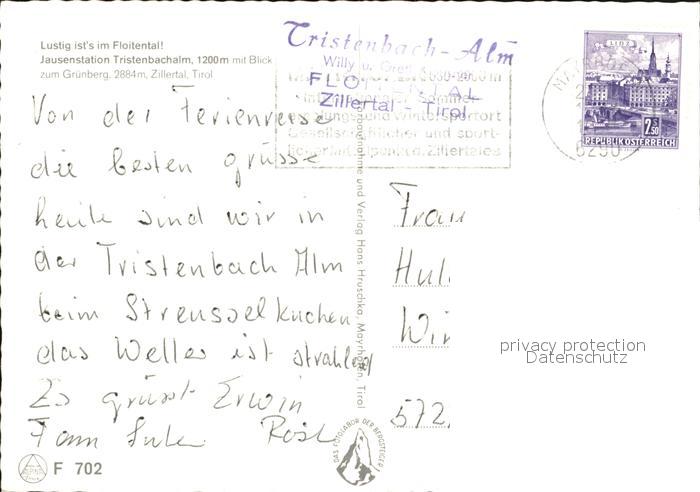 Lustig ist's im Floitental!
Jausenstation Tristenbachalm, 1200m mit Blick
zum Grünberg, 2884m, Zillertal, Tirol
Tristenbach-Alm
Willy u. Gretl
FLOITENTAL
Zillertal - Tirol
Wintersportort
Gesellschaftlicher und sport-
LINZ
2 S 50
REPUBLIK ÖSTERREICH
6290
Von der Ferienreise
die besten grüsse
heute sind wir in
der Tristenbach Alm
beim Streusselkuchen
das Wetter ist strahlend
Es grüsst Erwin
Fam
Frau
Hul
Wir
572
Verlag Hans Hruschka, Mayrhofen, Tirol
DAS FOTOLABOR DER BERGSTEIGER
F 702
privacy protection
Datenschutz